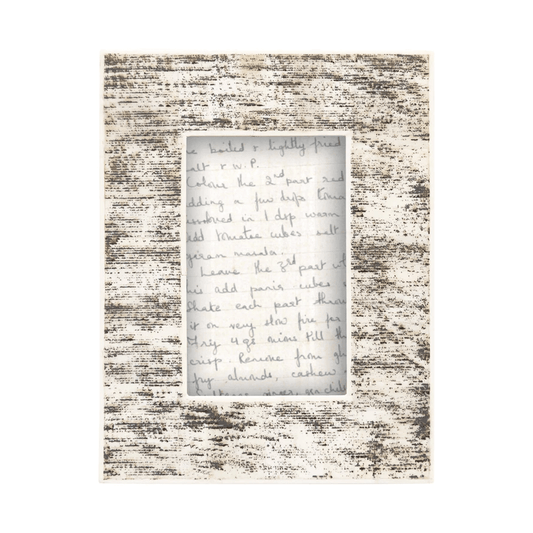 boiled & lightly fried
alt & w.p.
Colour the 2nd part red
dding a few drops
in 1 dsp warm
add tomatoe cubes salt
garam masala.
Leave the 3rd part
his add panir cubes
Shake each part
it on very slow fire for
Fry 4 gr onions till th
crisp. Remove from
fry almonds, cashew